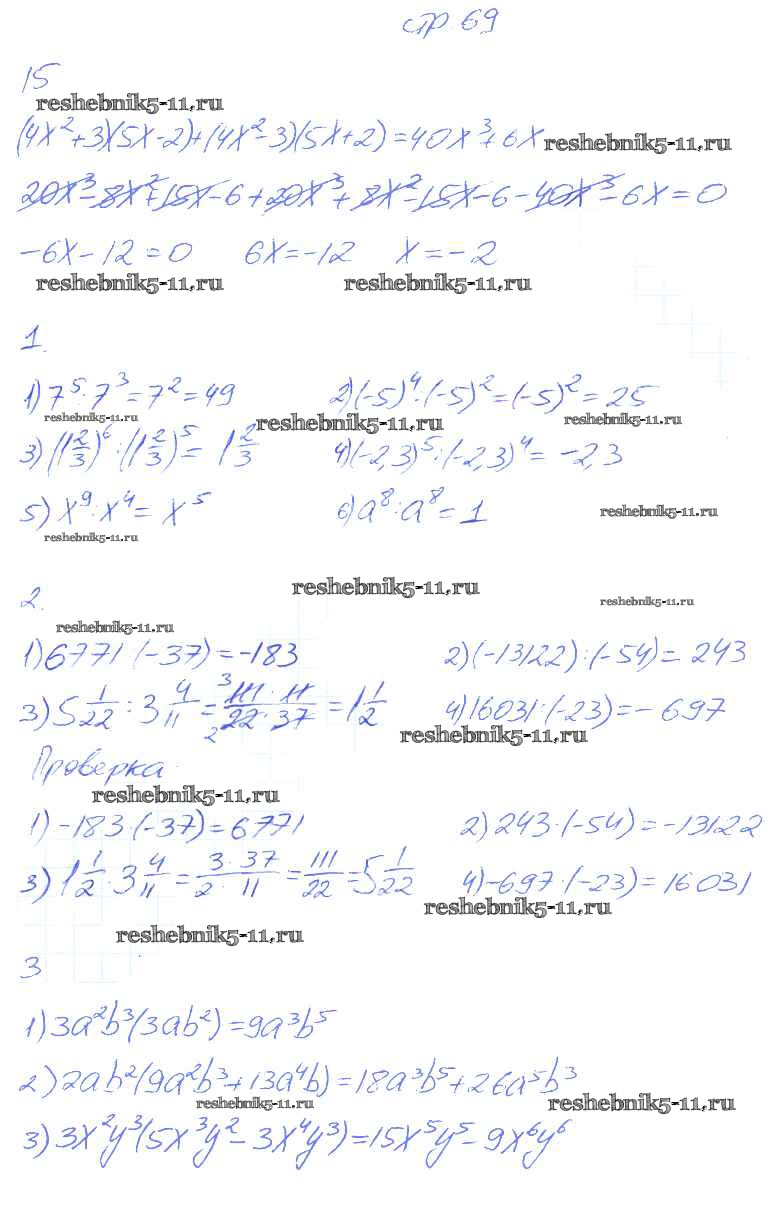 стр 69
15
reshebnik5-11.ru
(4x²+3)(5x-2)+(4x²-3)(5x+2)=40x³+6x reshebnik5-11.ru
20x³-8x²+15x-6+20x³+8x²-15x-6-40x³-6x=0
-6x-12=0 6x=-12 x=-2
reshebnik5-11.ru reshebnik5-11.ru
1.
1) 7⁵:7³=7²=49 2) (-5)⁴:(-5)²=(-5)²=25
reshebnik5-11.ru reshebnik5-11.ru reshebnik5-11.ru
3) (1 2/3)⁶:(1 2/3)⁵=1 2/3 4) (-2,3)⁵:(-2,3)⁴=-2,3
5) x⁹:x⁴=x⁵ 6) a⁸:a⁸=1 reshebnik5-11.ru
reshebnik5-11.ru
reshebnik5-11.ru
2. reshebnik5-11.ru
reshebnik5-11.ru
1) 6771 (-37)=-183 2) (-13122):(-54)=243
3) 5 1/22 : 3 4/11 = 3 111·11/22·37 2 = 1 1/2 4) 16031:(-23)=-697
reshebnik5-11.ru
Проверка
reshebnik5-11.ru
1) -183·(-37)=6771 2) 243·(-54)=-13122
3) 1 1/2·3 4/11=3·37/2·11=111/22=5 1/22 4) -697·(-23)=16031
reshebnik5-11.ru
reshebnik5-11.ru
3
1) 3a²b³(3ab²)=9a³b⁵
2) 2ab²(9a²b³+13a⁴b)=18a³b⁵+26a⁵b³
reshebnik5-11.ru reshebnik5-11.ru
3) 3x²y³(5x³y²-3x⁴y³)=15x⁵y⁵-9x⁶y⁶